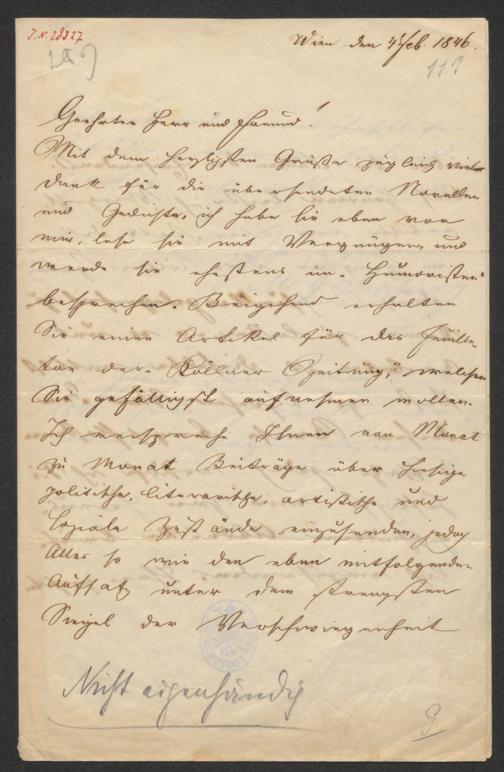 J. N. 28827
Wien den 4t Feb. 1846.
119
Geehrter Herr und Freund!
Mit dem herzlichsten Gruße zugleich vielen
Dank für die übersendeten Novellen
und Gedichte, ich habe sie eben vor
mir, lese sie mit Vergnügen und
werde sie ehestens im „Humoristen“
besprechen. Beigehend erhalten
Sie einen Artikel für das Feuille-
ton der „Köllner Zeitung,“ welchen
Sie gefälligst aufnehmen wollen.
Ich verspreche Ihnen von Monat
zu Monat Beiträge über hiesige
politische, literarische, artistische und
soziale Zustände einzusenden, jedoch
Alles so wie den eben mitfolgenden
Aufsatz unter dem strengsten
Siegel der Verschwiegenheit
Nicht eigenhändig